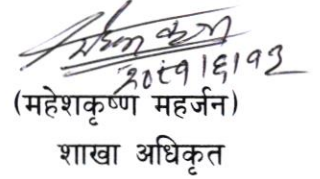 २०८१।६।१३
(महेशकृष्ण महर्जन)
शाखा अधिकृत